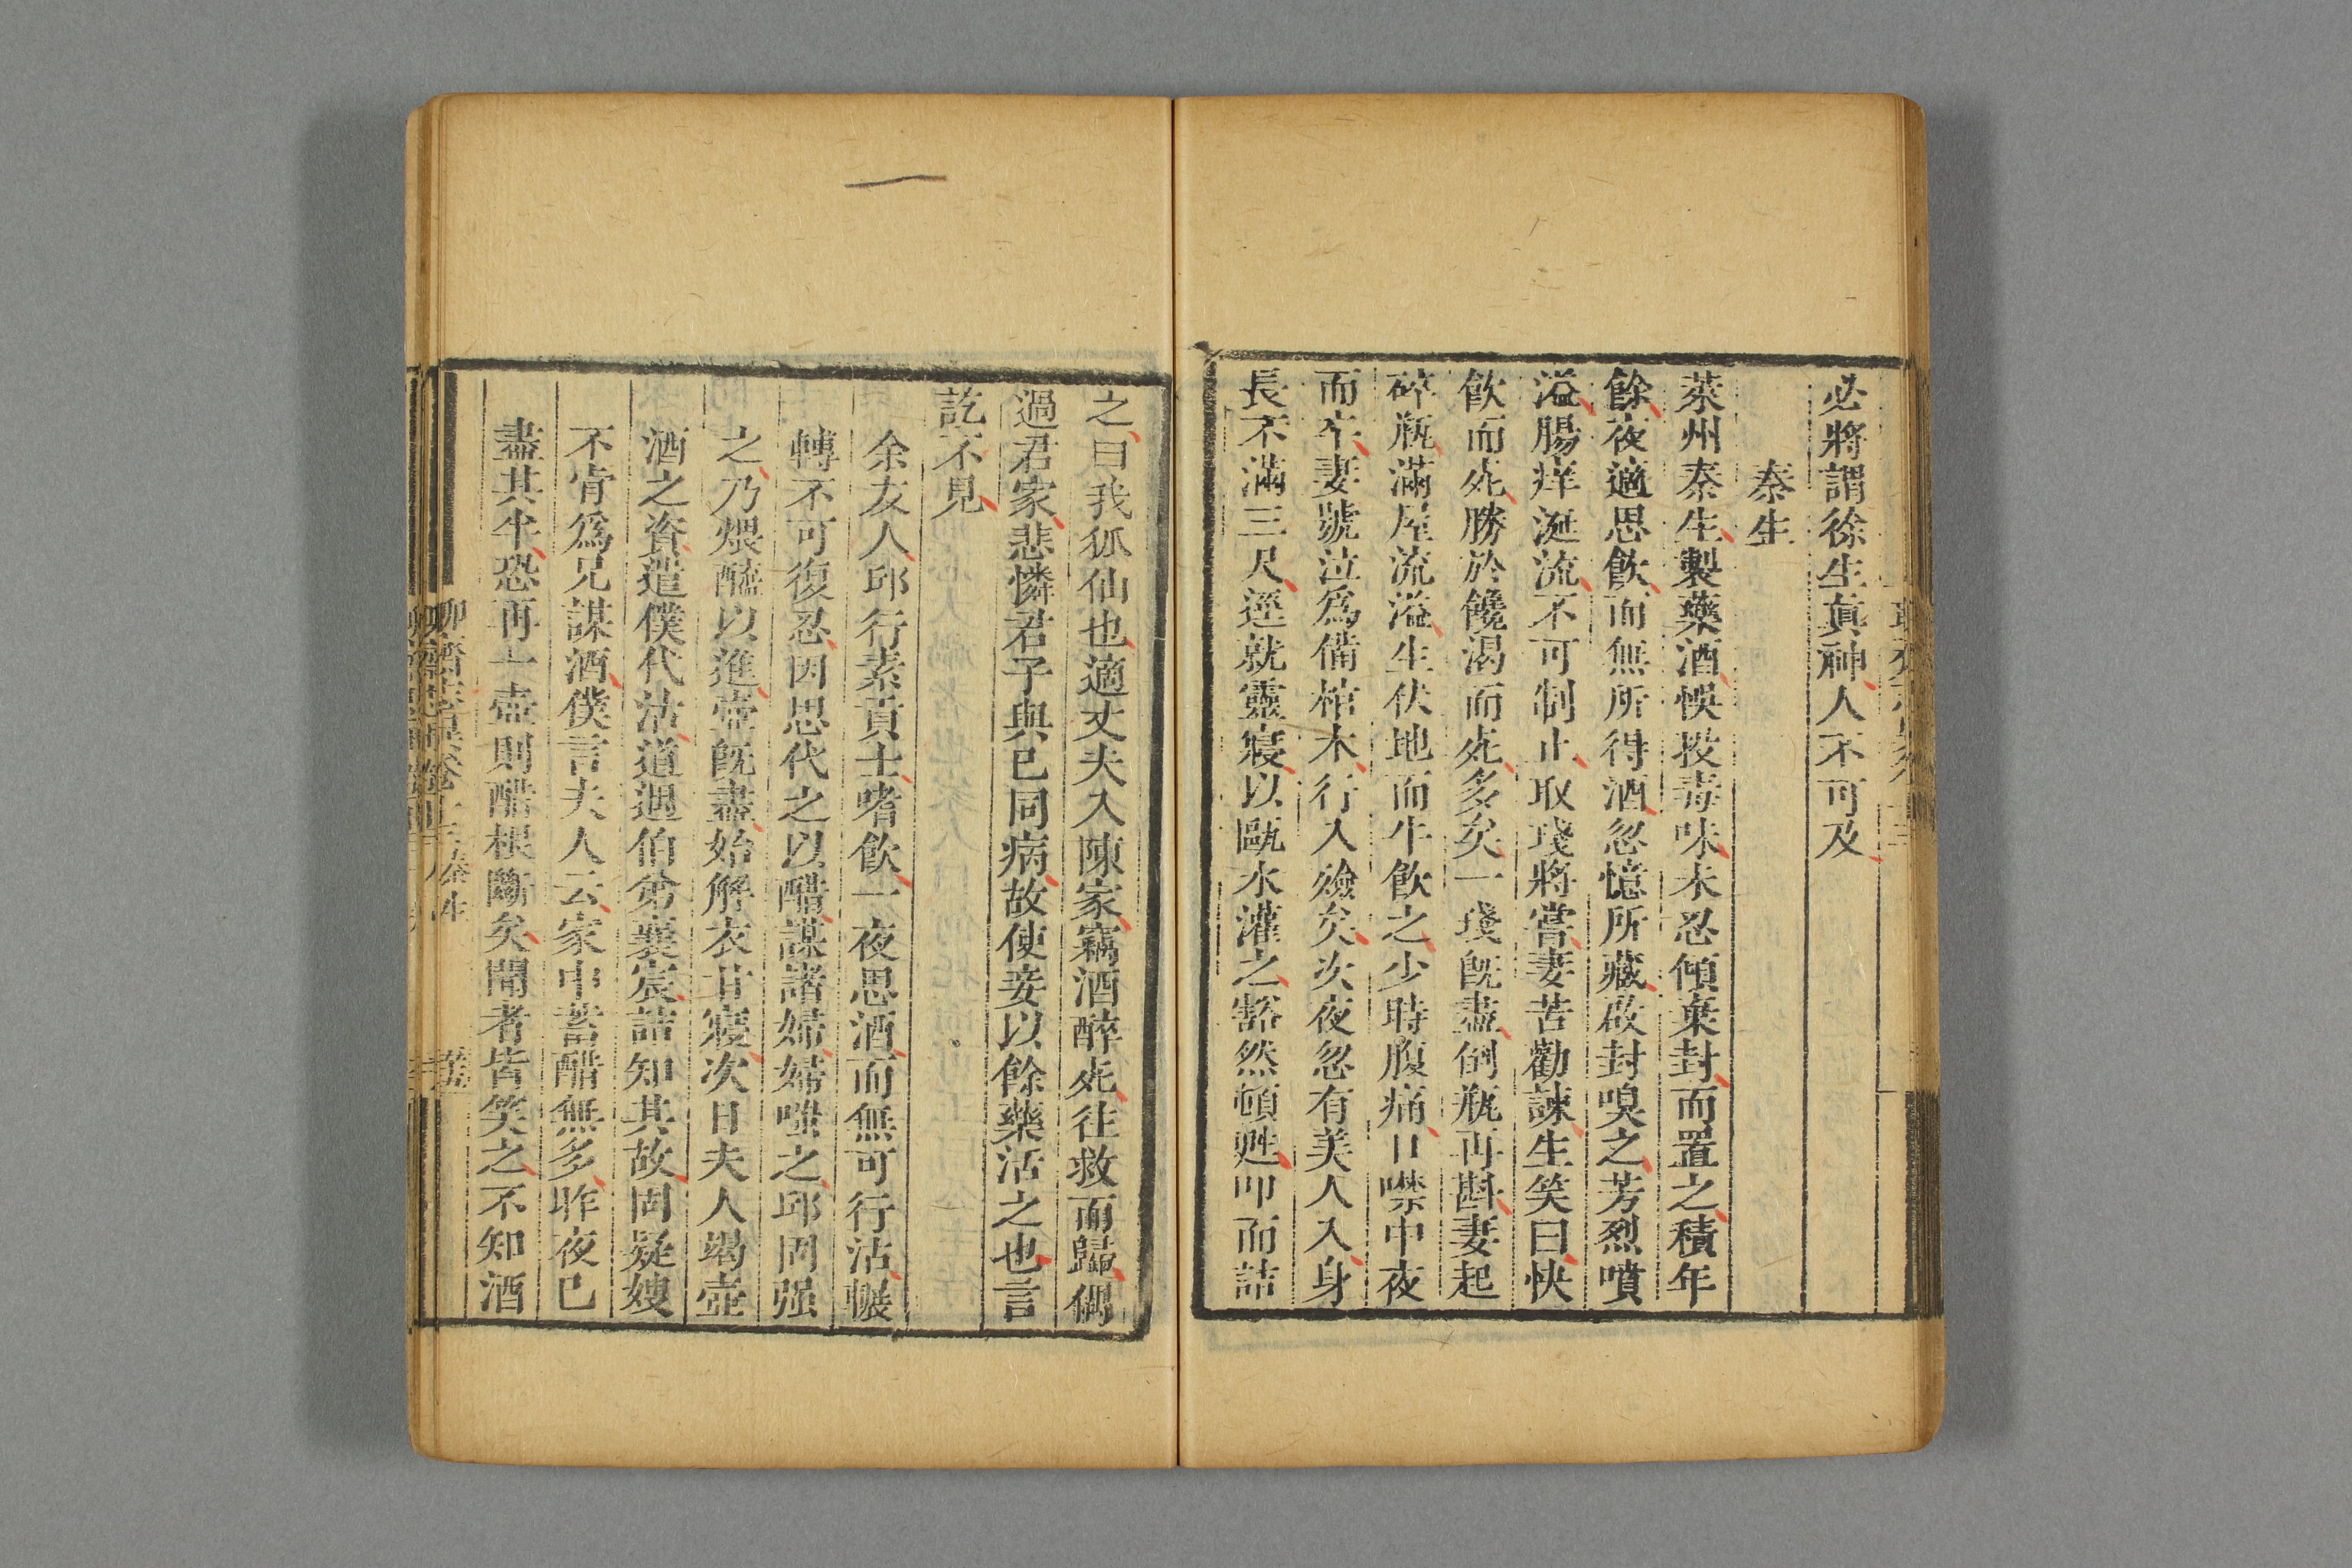 必將謂徐生真神人不可及
秦生
萊州秦生製藥酒悞投毒味未忍傾棄封而置之積年
餘夜適思飲而無所得酒忽憶所藏啟封嗅之芳烈噴
溢腸痒涎流不可制止取琖將嘗妻苦勸諫生笑曰快
飲而死勝於饞渴而死多矣一琖旣盡倒瓶再斟妻起
碎瓶滿屋流溢生伏地而牛飲之少時腹痛口噤中夜
而卒妻號泣爲備棺木行入殮矣次夜忽有美人入身
長不滿三尺逕就靈寢以甌水灌之豁然頓甦叩而詰
之曰我狐仙也適丈夫入陳家竊酒醉死往救而歸偶
過君家悲憐君子與已同病故使妾以餘藥活之也言
訖不見
余友人邱行素貢士嗜飲一夜思酒而無可行沽輾
轉不可復忍因思代之以醋謀諸婦婦嗤之邱固强
之乃煨醯以進壺旣盡始解衣甘寢次日夫人竭壺
酒之資遣僕代沽道遇伯弟襄宸詰知其故固疑嫂
不肯爲兄謀酒僕言夫人云家中蓄醋無多昨夜已
盡其半恐再一壺則醋根斷矣聞者皆笑之不知酒